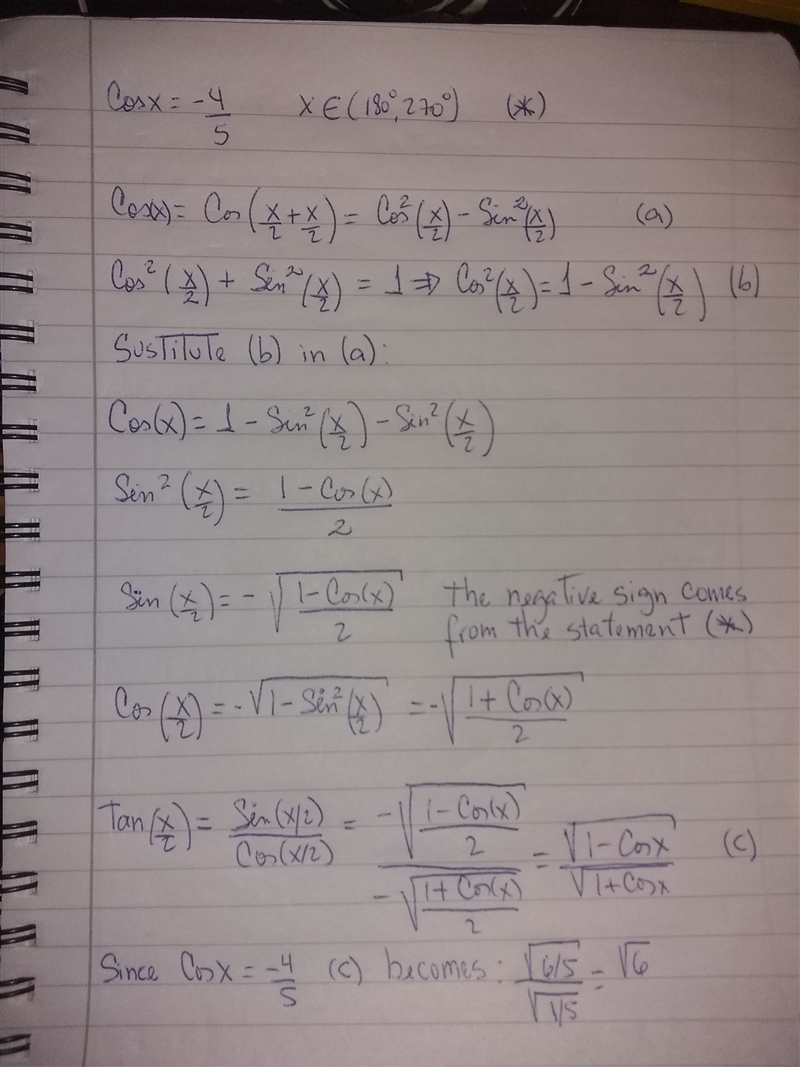 Cosx = -4/5 x ∈ (180°, 270°) (*)
Cos(x) = Cos(x/2 + x/2) = Cos²(x/2) - Sin²(x/2) (a)
Cos²(x/2) + Sin²(x/2) = 1 ⇒ Cos²(x/2) = 1 - Sin²(x/2) (b)
Sustitute (b) in (a):
Cos(x) = 1 - Sin²(x/2) - Sin²(x/2)
Sin²(x/2) = (1 - Cos(x))/2
Sin(x/2) = - √((1 - Cos(x))/2) the negative sign comes
from the statement (*)
Cos(x/2) = -√(1 - Sin²(x/2)) = -√((1 + Cos(x))/2)
Tan(x/2) = Sin(x/2)/Cos(x/2) = -√((1 - Cos(x))/2) / -√((1 + Cos(x))/2) = √(1 - Cosx)/√(1 + Cosx) (c)
Since Cosx = -4/5 (c) becomes: √(6/5)/√(1/5) = √6